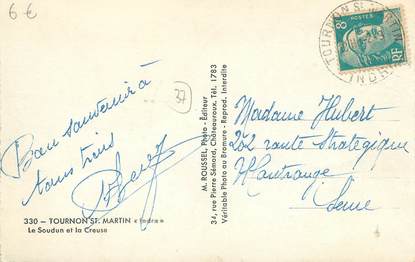 6€
TOURNON ST MARTIN
INDRE
8
POSTES
RF
37
Bon souvenir à
tous trois
M. ROUSSEL, Photo - Éditeur
34, rue Pierre Sémard, Châteauroux. Tél. 1783
Véritable Photo au Bromure - Reprod. Interdite
Madame Hubert
202 route Stratégique
Montrouge
Seine
330 — TOURNON ST. MARTIN « Indre »
Le Soudun et la Creuse